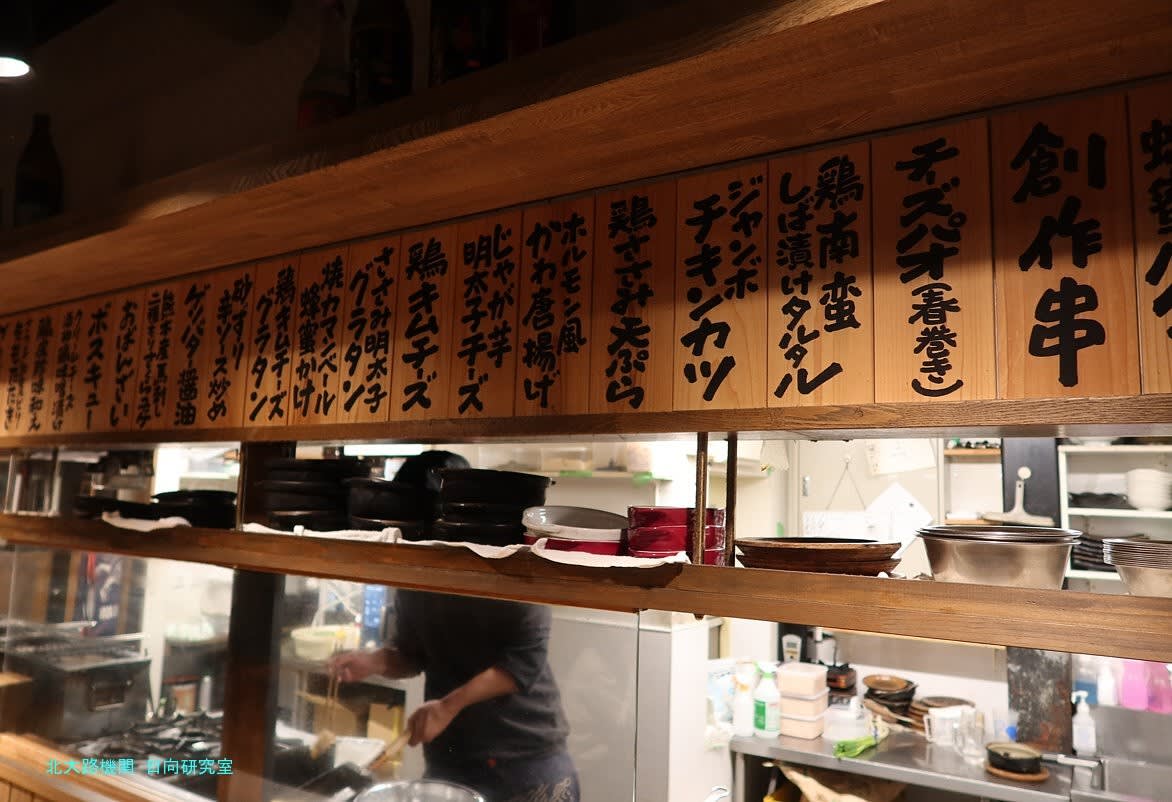 創作串
チーズパオ(春巻き)
鶏南蛮
しば漬けタルタル
ジャンボ
チキンカツ
鶏ささみ天ぷら
ホルモン風
かわ唐揚げ
じゃが芋
明太子チーズ
鶏キムチーズ
ささみ明太子
グラタン
焼カマンベール
蜂蜜かけ
鶏キムチーズ
グラタン
砂ずり
辛ソース炒め
ゲソバター醤油
熊本産馬刺し
おばんざい
ボスキュー
北大路機関 日向研究室